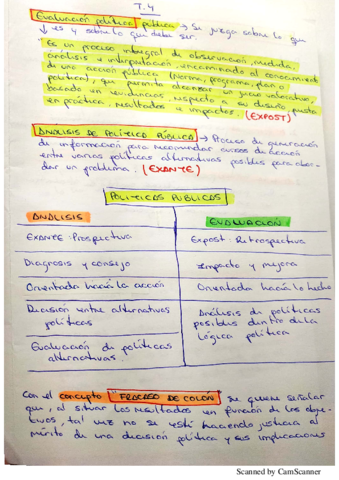 T.4
Evaluación política pública → Se juzga sobre lo que
↓ es y sobre lo que debe ser.
"Es un proceso integral de observación, medida,
análisis e interpretación, encaminado al conocimiento
de una acción pública (norma, programa, plan o
política), que permita alcanzar un juicio valorativo,
basado en evidencias, respecto a su diseño, puesta
en práctica, resultados e impactos. (EXPOST)
ANALISIS DE POLÍTICA PÚBLICA → Proceso de generación
de información para recomendar cursos de acción
entre varias políticas alternativas posibles para abor-
dar un problema. (EXANTE)
POLITICAS PUBLICAS
ANALISIS
EVALUACION
Exante: Prospectiva
Expost: Retrospectiva
Diagnosis y consejo
Impacto y mejora
Orientada hacia la acción
Orientada hacia lo hecho
Decisión entre alternativas
políticas
Análisis de políticas
posibles dentro de la
lógica política
Evaluación de políticas
alternativas.
Con el concepto "FRACASO DE COLÓN" se quiere señalar
que, al situar los resultados en función de los obje-
tivos, tal vez no se esté haciendo justicia al
mérito de una decisión política y sus implicaciones
Scanned by CamScanner